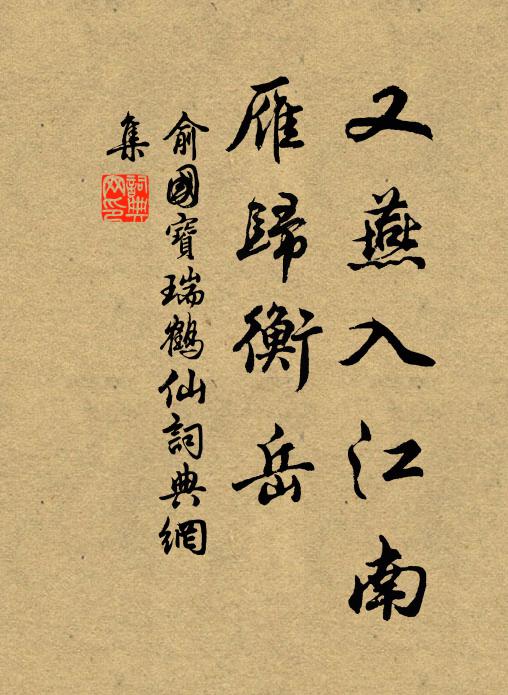 又燕入江南
雁歸衡岳
俞國寶瑞鶴仙詞典網
集
詞典
网印